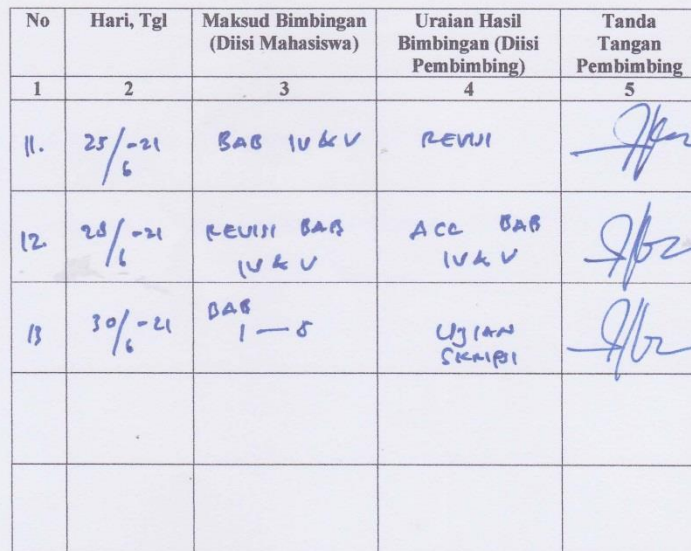 No
Hari, Tgl
Maksud Bimbingan
(Diisi Mahasiswa)
Uraian Hasil
Bimbingan (Diisi
Pembimbing)
Tanda
Tangan
Pembimbing
1
2
3
4
5
11.
25/6 -21
BAB IV & V
REVISI
12.
28/6 -21
REVISI BAB
IV & V
ACC BAB
IV & V
13
30/6 -21
BAB
1 — 5
UJIAN
SKRIPSI